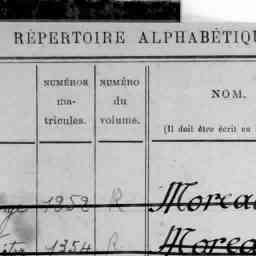 RÉPERTOIRE ALPHABÉTIQU
NUMÉROS
ma-
tricules.
NUMÉRO
du
volume.
NOM.
(Il doit être écrit en
1352 R Morea
1354 R Morea